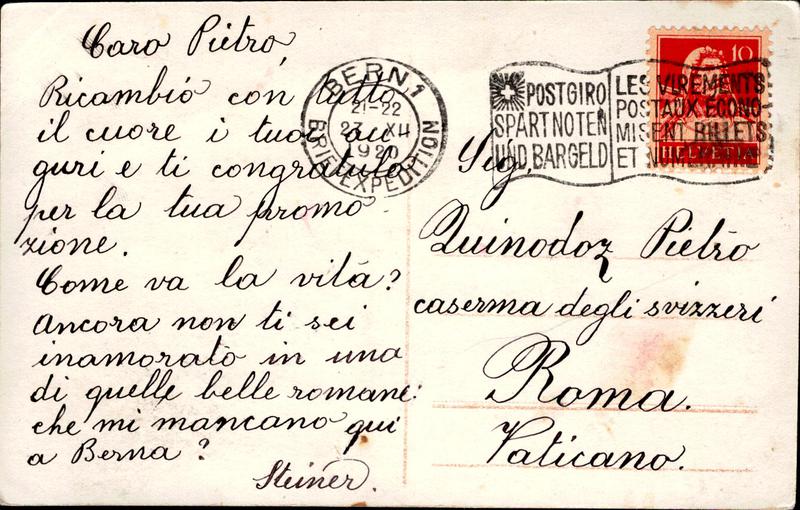 Caro Pietro,
Ricambio con tutto
il cuore i tuoi au
guri e ti congratulo
per la tua promo
zione.
Come va la vità?
Ancora non ti sei
inamorato in una
di quelle belle romane:
che mi mancano qui
a Berna?
Steiner.
BERN 1
21-22
1920
BRIEFEXPEDITION
POSTGIRO
SPART NOTEN
UND BARGELD
LES VIREMENTS
POSTAUX ÉCONO
MISENT BILLETS
ET NUMÉRAIRE
10
HELVETIA
Sig.
Quinodoz Pietro
caserma degli svizzeri
Roma.
Vaticano.